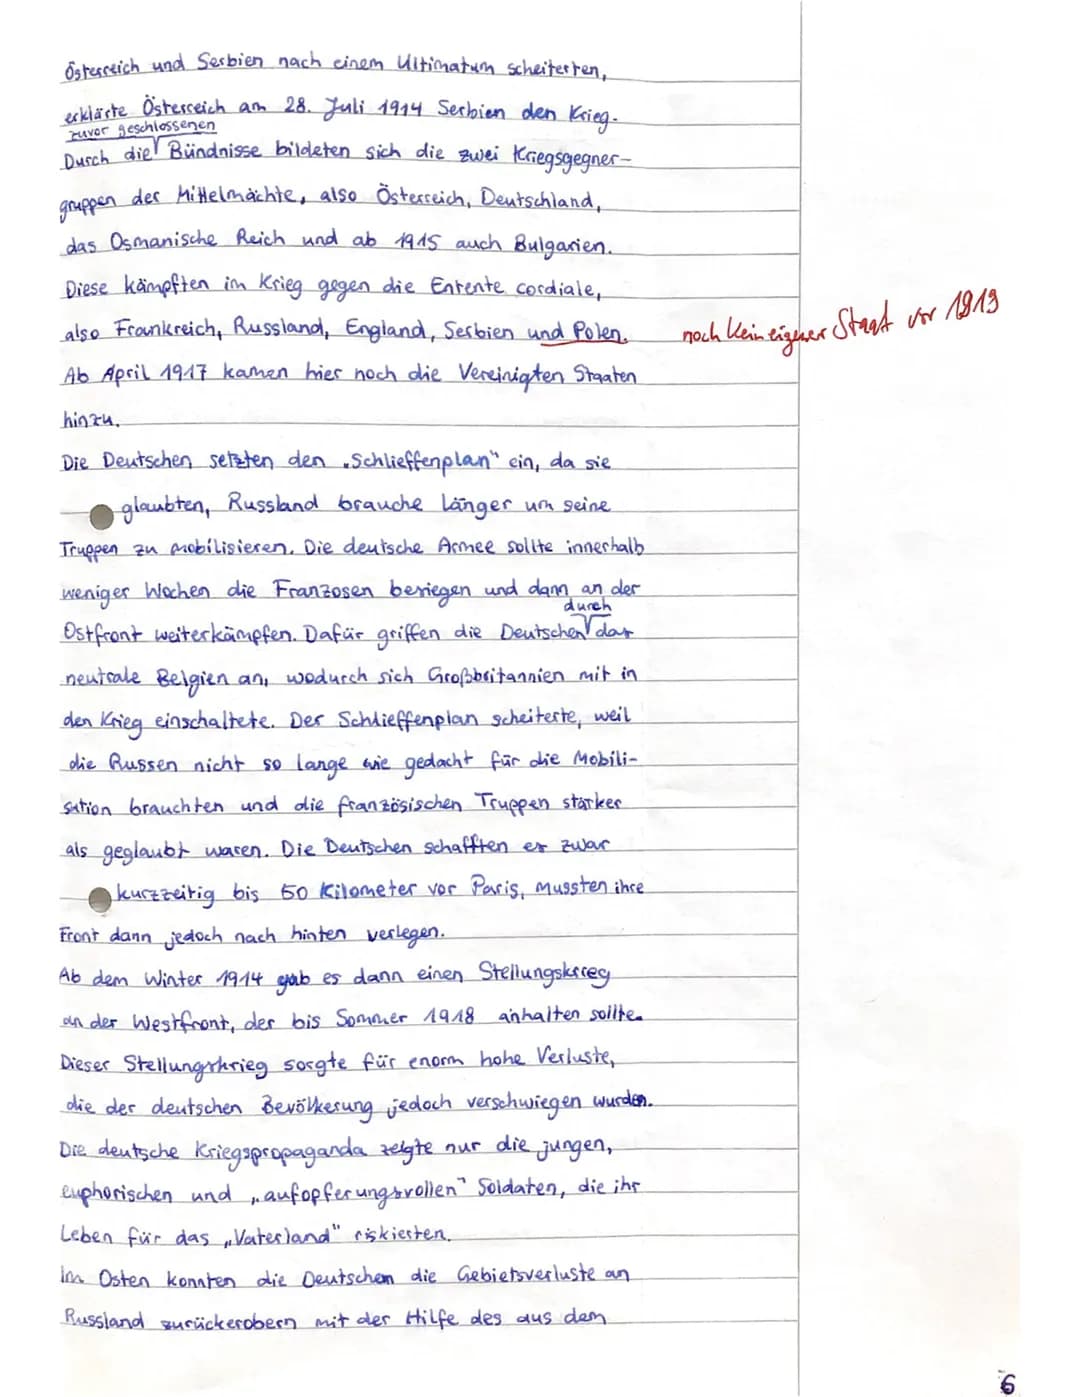 Österreich und Serbien nach einem Ultimatum scheiterten,
erklärte Österreich am 28. Juli 1914 Serbien den Krieg.
zuvor geschlossenen
Durch die Bündnisse bildeten sich die zwei Kriegsgegner-
gruppen der Mittelmächte, also Österreich, Deutschland,
das Osmanische Reich und ab 1915 auch Bulgarien.
Diese kämpften im Krieg gegen die Entente cordiale,
also Frankreich, Russland, England, Serbien und Polen. noch kein eigener Staat vor 1919
Ab April 1917 kamen hier noch die Vereinigten Staaten
hinzu.
Die Deutschen setzten den „Schlieffenplan" ein, da sie
glaubten, Russland brauche länger um seine
Truppen zu mobilisieren. Die deutsche Armee sollte innerhalb
weniger Wochen die Franzosen besiegen und dann an der
durch
Ostfront weiterkämpfen. Dafür griffen die Deutschen das
neutrale Belgien an, wodurch sich Großbritannien mit in
den Krieg einschaltete. Der Schlieffenplan scheiterte, weil
die Russen nicht so lange wie gedacht für die Mobili-
sation brauchten und die französischen Truppen stärker
als geglaubt waren. Die Deutschen schafften es zwar
kurzzeitig bis 50 Kilometer vor Paris, mussten ihre
Front dann jedoch nach hinten verlegen.
Ab dem Winter 1914 gab es dann einen Stellungskrieg
an der Westfront, der bis Sommer 1918 anhalten sollte.
Dieser Stellungskrieg sorgte für enorm hohe Verluste,
die der deutschen Bevölkerung jedoch verschwiegen wurden.
Die deutsche Kriegspropaganda zeigte nur die jungen,
euphorischen und „aufopferungsvollen" Soldaten, die ihr
Leben für das „Vaterland" riskierten.
Im Osten konnten die Deutschen die Gebietsverluste an
Russland zurückerobern mit der Hilfe des aus dem
6